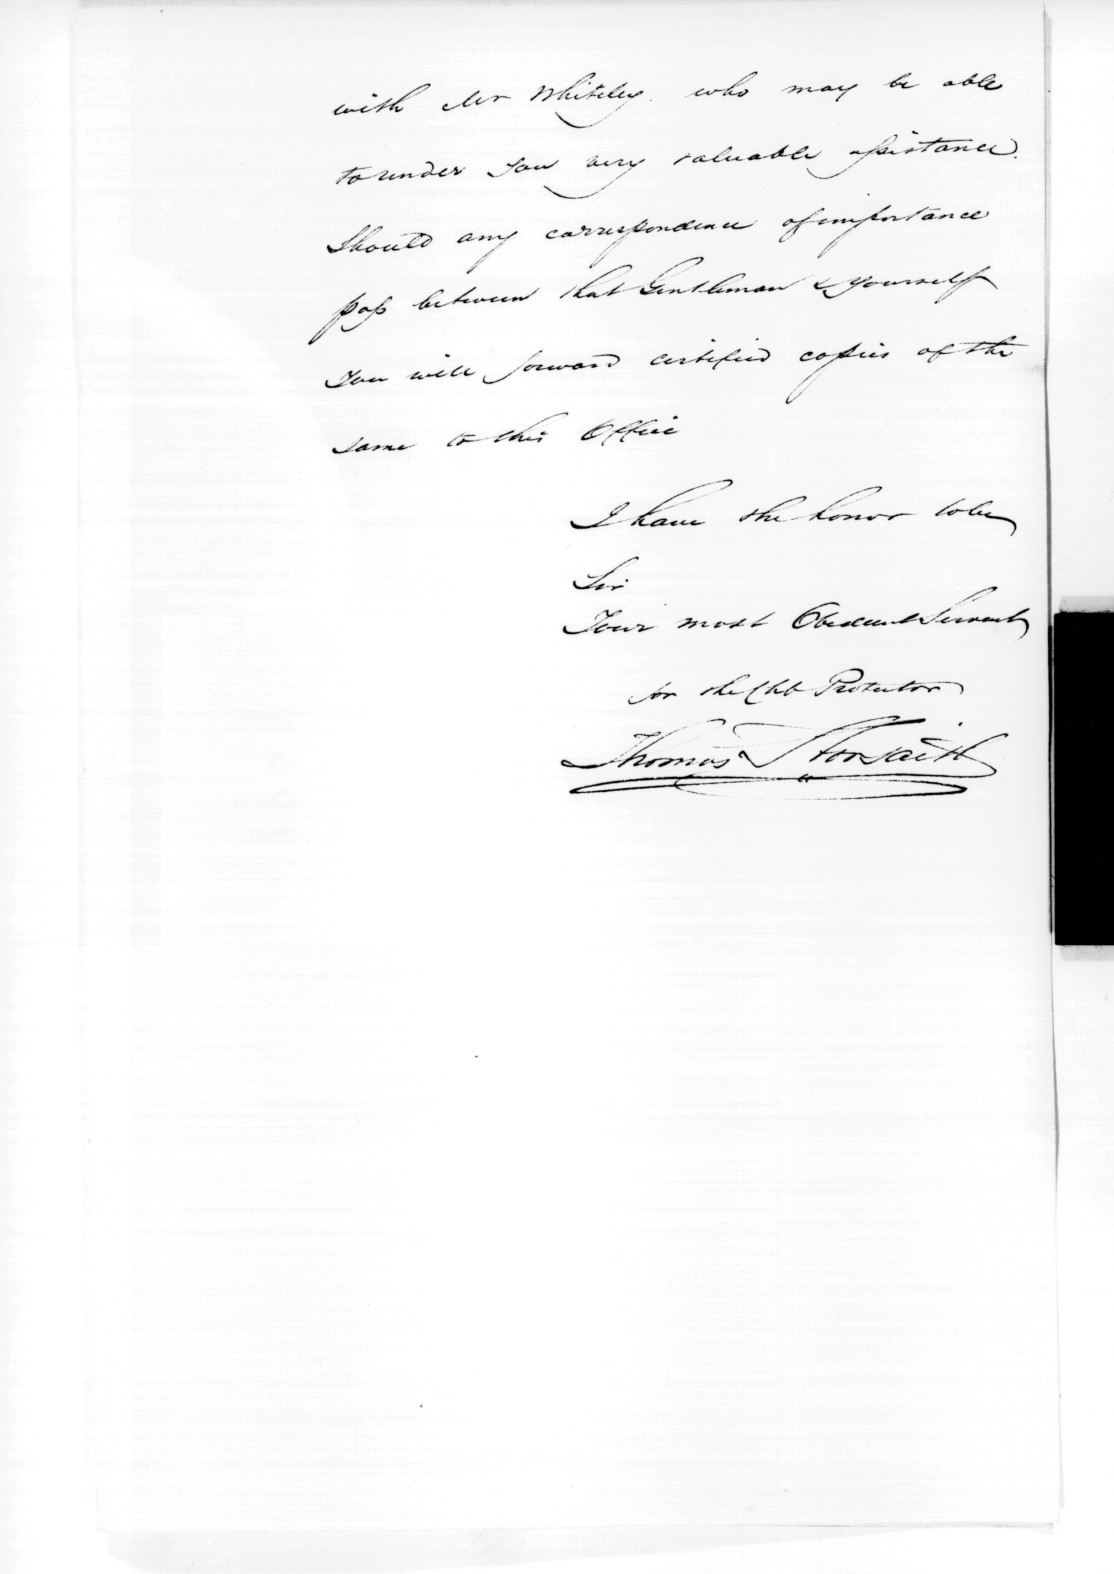 with Mr Whiteley who may be able
to render you very valuable assistance.
Should any correspondence of importance
pass between that Gentleman & yourself
you will forward certified copies of the
same to this Office
I have the honor to be
Sir
Your most Obedient Servant
for the Chf Protector
Thomas S Forsaith